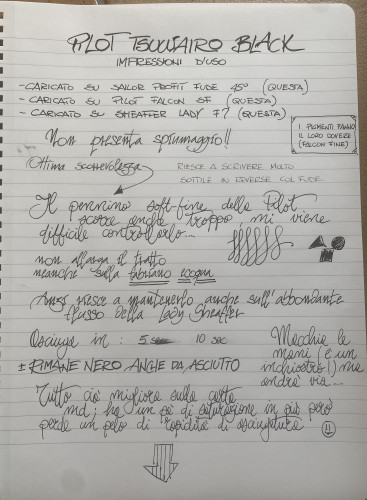 PILOT TSUWAIRO BLACK
IMPRESSIONI D'USO
- CARICATO SU SAILOR PROFIT FUDE 45° (QUESTA)
- CARICATO SU PILOT FALCON SF (QUESTA)
- CARICATO SU SHEAFFER LADY F? (QUESTA)
I PIGMENTI FANNO
IL LORO DOVERE
(FALCON FINE)
Non presenta spiumaggio!!
Ottima scorrevolezza
RIESCE A SCRIVERE MOLTO
SOTTILE IN REVERSE COL FUDE
Il pennino soft-fine della Pilot
scorre anche troppo, mi viene
difficile controllarlo...
non allarga il tratto
neanche sulla fabriano ecoqua
Anzi riesce a mantenerlo anche sull'abbondante
flusso della Lady Sheaffer
Asciuga in: 5 sec 10 sec
± RIMANE NERO, ANCHE DA ASCIUTTO
Macchia le
mani (è un
inchiostro!) ma
andrà via...
Tutto ciò migliora sulla carta
md; ha un po' di saturazione in più però
perde un pelo di rapidità di asciugatura